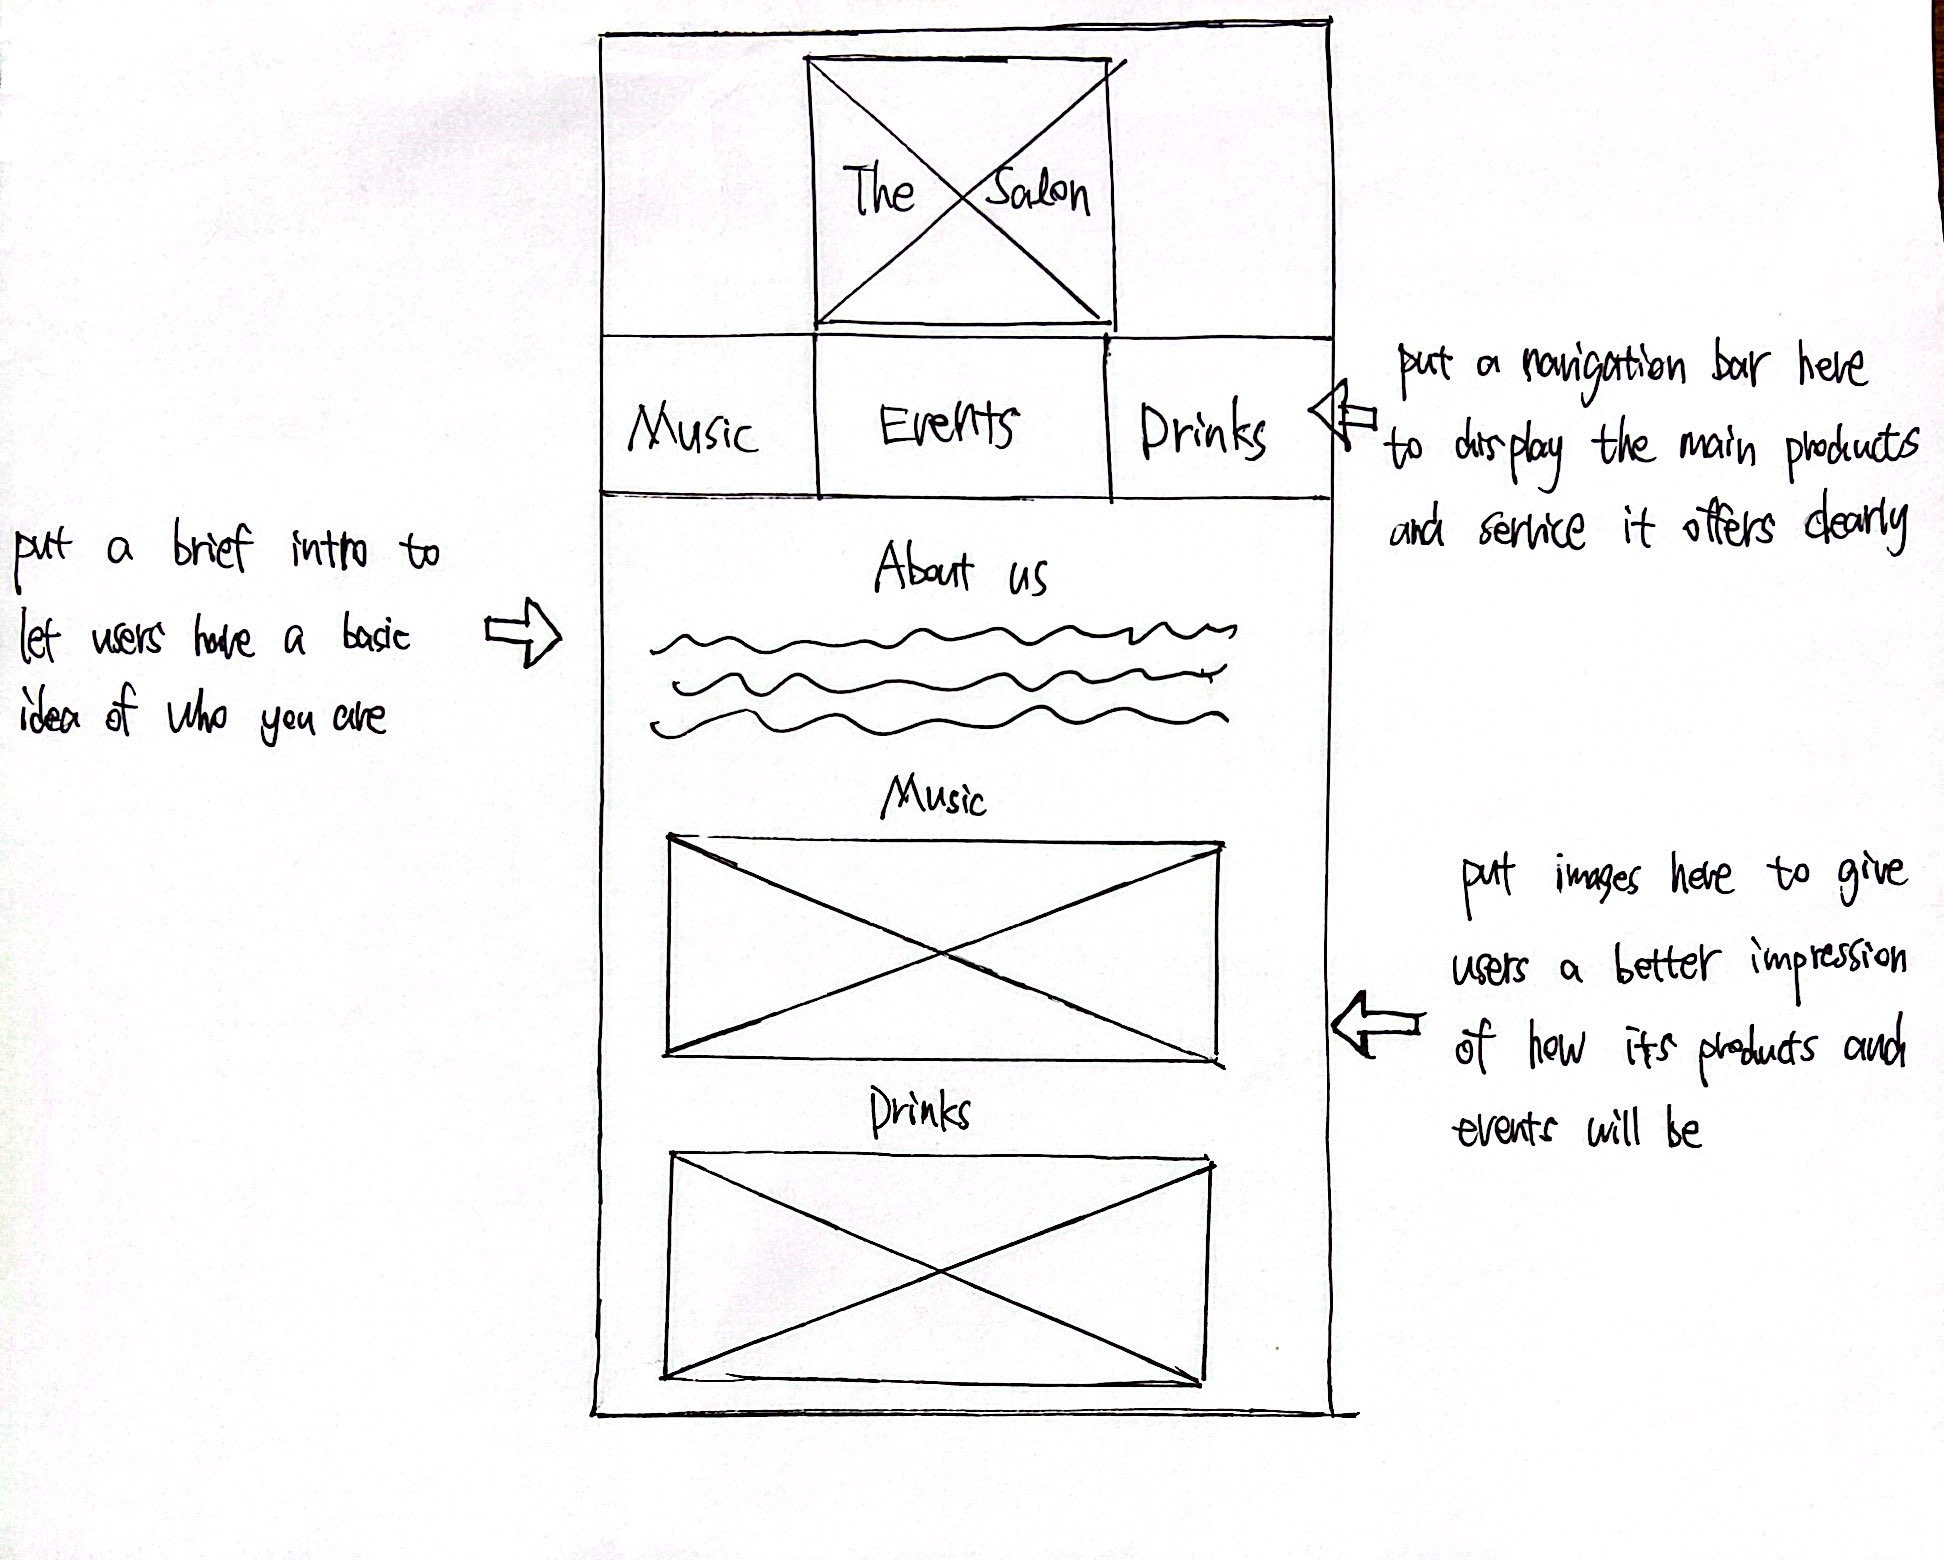 The Salon
Music Events Drinks
put a navigation bar here
to display the main products
and service it offers clearly
put a brief intro to
let users have a basic
idea of who you are
About us
Music
put images here to give
users a better impression
of how its products and
events will be
Drinks